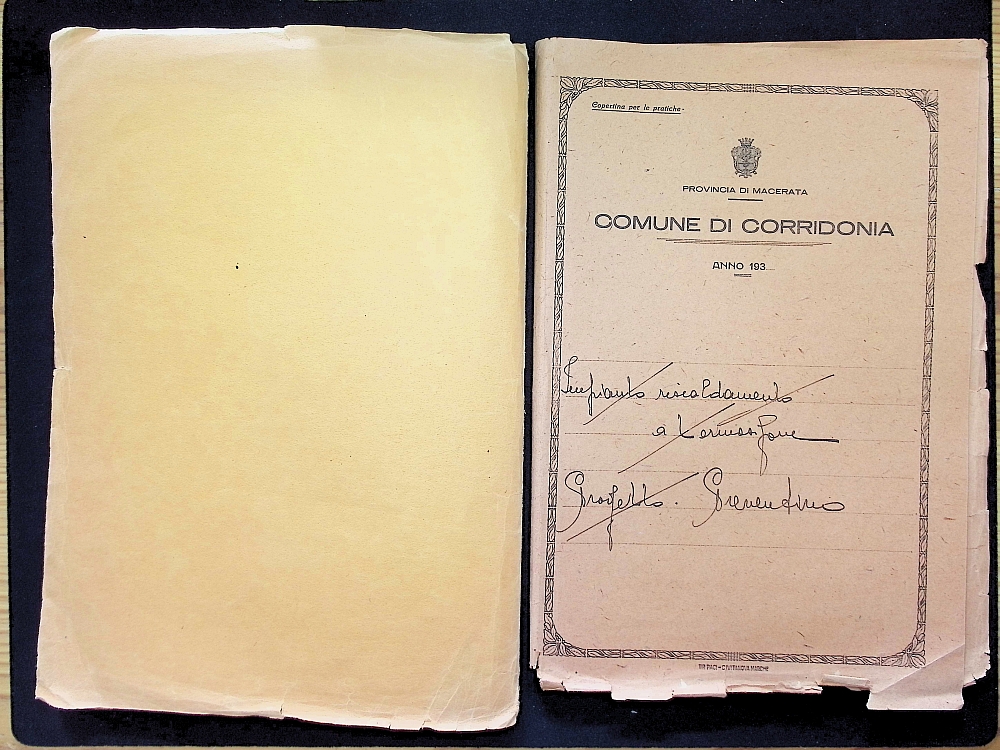 Copertina per le pratiche-
PROVINCIA DI MACERATA
COMUNE DI CORRIDONIA
ANNO 193
Impianto riscaldamento
a termosifone
Progetto. Preventivo
TIP. PACI - CIVITANOVA MARCHE